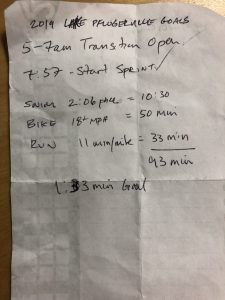 2014 LAKE PFLUGERVILLE GOALS
5-7am Transition Open.
7:57 - Start SPRINT
SWIM 2:06 pace = 10:30
BIKE 18+ MPH = 50 min
RUN 11 min/mile = 33 min
93 min
1:33 min Goal